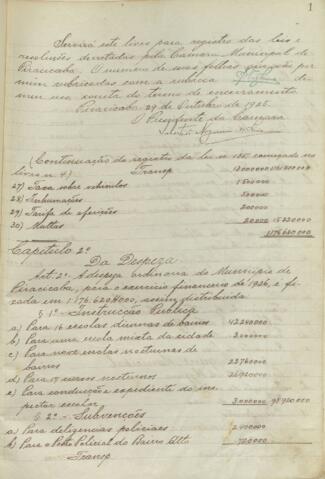 1
Servirá este livro para registro das leis e
resoluções decretadas pela Camara Municipal de
Piracicaba. O numero de suas folhas
mim rubricadas com a rubrica
consta do termo de encerramento.
Piracicaba 29 de Outubro de 1925.
O Presidente da Camara
(Continuação do registro da lei n 185 começado no
livro n 4.) Transp
27) Taxa sobre vehiculos
28) Inhumações 50000
29) Tarifa de aferições 200000
30) Multas 20000
1176620000
Capitulo 2º
Da Despeza
Art. 2º A despeza ordinaria do Municipio de
Piracicaba, para o exercicio financeiro de 1926, é fi-
xada em 1.176.620$000, assim distribuida
§ 1º - Instrucção Publica
a) Para 16 escolas diurnas de bairros 42240000
b) Para uma escola mixta da cidade
c) Para nove escolas nocturnas de
bairros 23760000
d) Para 17 cursos nocturnos
e) Para conducção e expediente do ins-
pector escolar 3000000
§ 2º - Subvenções
a) Para deligencias policiaes 2400000
b) Para o Posto Policial do Bairro Alto 720000
Transp